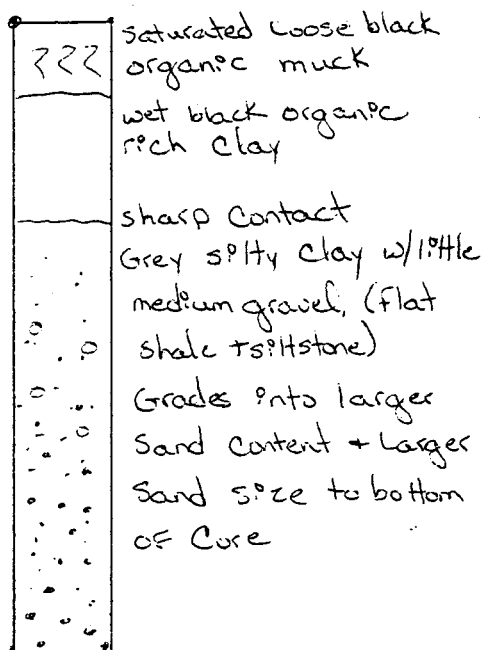 saturated loose black
organic muck
wet black organic
rich clay
sharp contact
Grey silty clay w/little
medium gravel, (flat
shale + siltstone)
Grades into larger
Sand content + Larger
Sand size to bottom
of Core